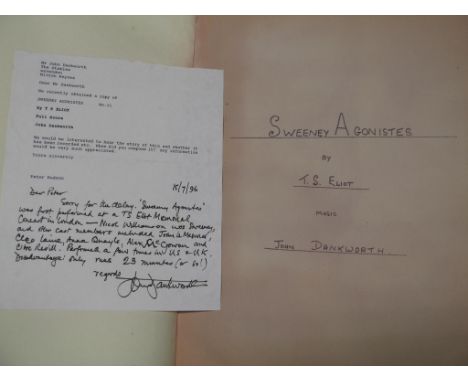 Mr John Dankworth
The Stables
Wavendon
Milton Keynes
Dear Mr Dankworth
We recently obtained a copy of
SWEENEY AGONISTES
By T S ELIOT
Full Score
John Dankworth
We would be interested to hear the story of this and whether it
has been recorded etc. When did you compose it? Any information
would be very much appreciated.
Yours sincerely
Peter
15/7/96
Dear Peter
Sorry for the delay. 'Sweeney Agonistes'
was first performed at a TS Eliot Memorial
Concert in London — Nicol Williamson was Sweeney,
and other cast members included
Cleo Laine, Anna Quayle, Alec McCowen and
Clive Revill. Performed a few times in U.S & U.K.
Disadvantage: Only runs 23 minutes (or so!)
regards
John Dankworth
SWEENEY AGONISTES
BY
T.S. ELIOT
MUSIC
JOHN DANKWORTH